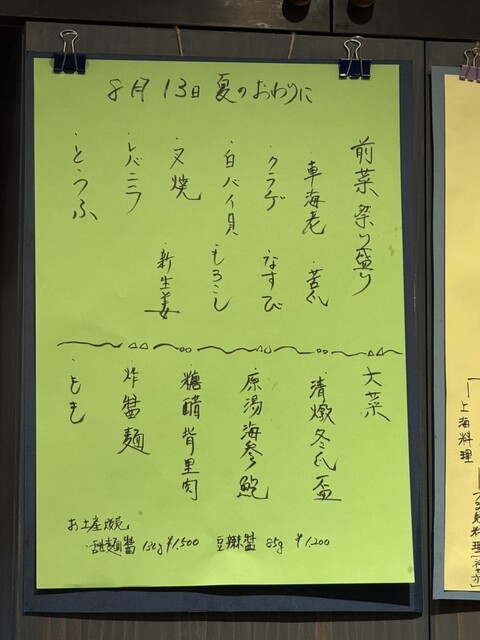 8月13日 夏のおわりに
前菜 祭り盛り
・車海老
・苦瓜
・クラゲ
・なすび
・白バイ貝
・もろこし
・叉焼
・新生姜
・レバニラ
・とうふ
大菜
・清燉冬瓜盃
・原湯海参鮑
・糖醋背里肉
・炸醤麺
・もも
お土産販売
・甜麺醤 130g ¥1,500 豆辣醤 85g ¥1,200
上海料理